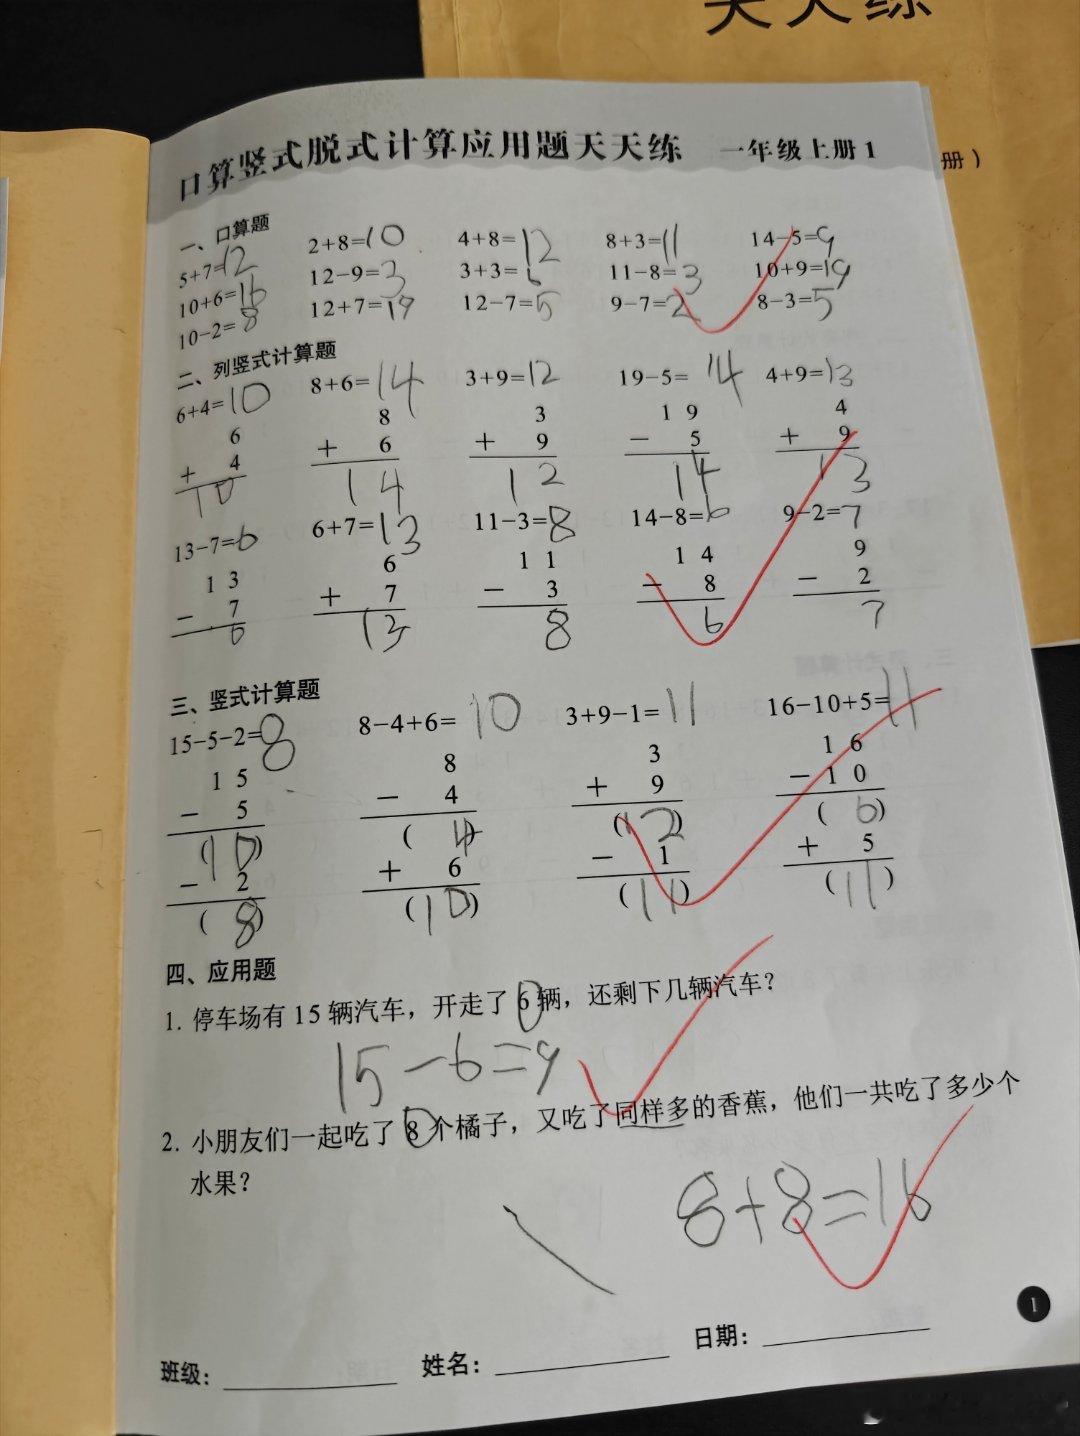 天天练
册）
口算竖式脱式计算应用题天天练 一年级上册1
一、口算题
5+7=12 2+8=10 4+8=12 8+3=11 14-5=9
10+6=16 12-9=3 3+3=6 11-8=3 10+9=19
10-2=8 12+7=19 12-7=5 9-7=2 8-3=5
二、列竖式计算题
6+4=10 8+6=14 3+9=12 19-5=14 4+9=13
6 8 3 19 4
+ 4 + 6 + 9 - 5 + 9
10 14 12 14 13
13-7=6 6+7=13 11-3=8 14-8=6 9-2=7
13 6 11 14 9
- 7 + 7 - 3 - 8 - 2
6 13 8 6 7
三、竖式计算题
15-5-2=8 8-4+6=10 3+9-1=11 16-10+5=11
15 8 3 16
- 5 - 4 + 9 -10
(10) (4) (12) (6)
- 2 + 6 - 1 + 5
(8) (10) (11) (11)
四、应用题
1. 停车场有 15 辆汽车，开走了 6 辆，还剩下几辆汽车？
15-6=9
2. 小朋友们一起吃了 8 个橘子，又吃了同样多的香蕉，他们一共吃了多少个
水果？
8+8=16
1
班级： 姓名： 日期：